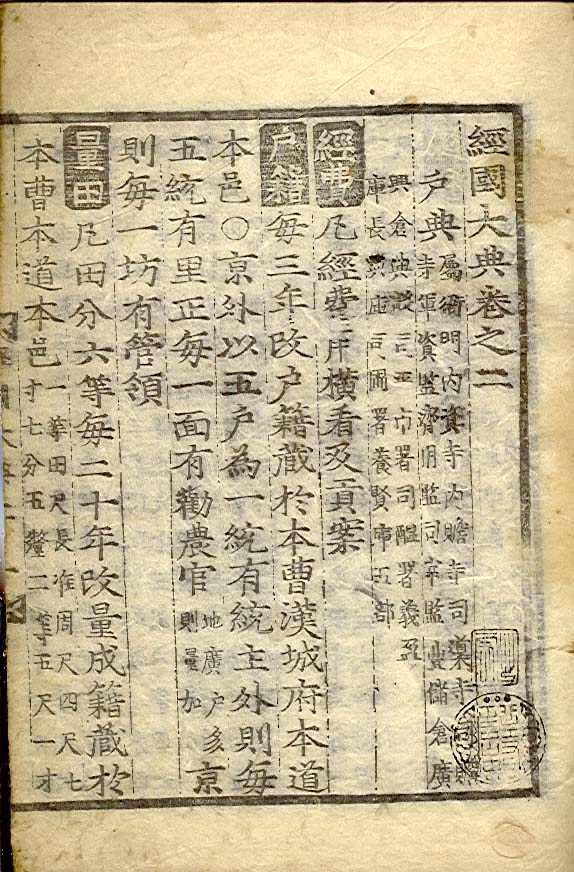 經國大典卷之二
户典 屬衙門內資寺內贍寺司䆃寺司贍
寺軍資監濟用監司宰監豊儲倉廣
興倉典設司平市署司醞署義盈
庫長興庫司圃署養賢庫五部
經費 凡經費用橫看及貢案
户籍 每三年改户籍藏於本曹漢城府本道
本邑○京外以五户為一統有統主外則每
五統有里正每一面有勸農官 地廣户多則量加 京
則每一坊有管領
量田 凡田分六等每二十年改量成籍藏於
本曹本道本邑 一等田尺長准周尺四尺七
寸七分五釐二等五尺一寸